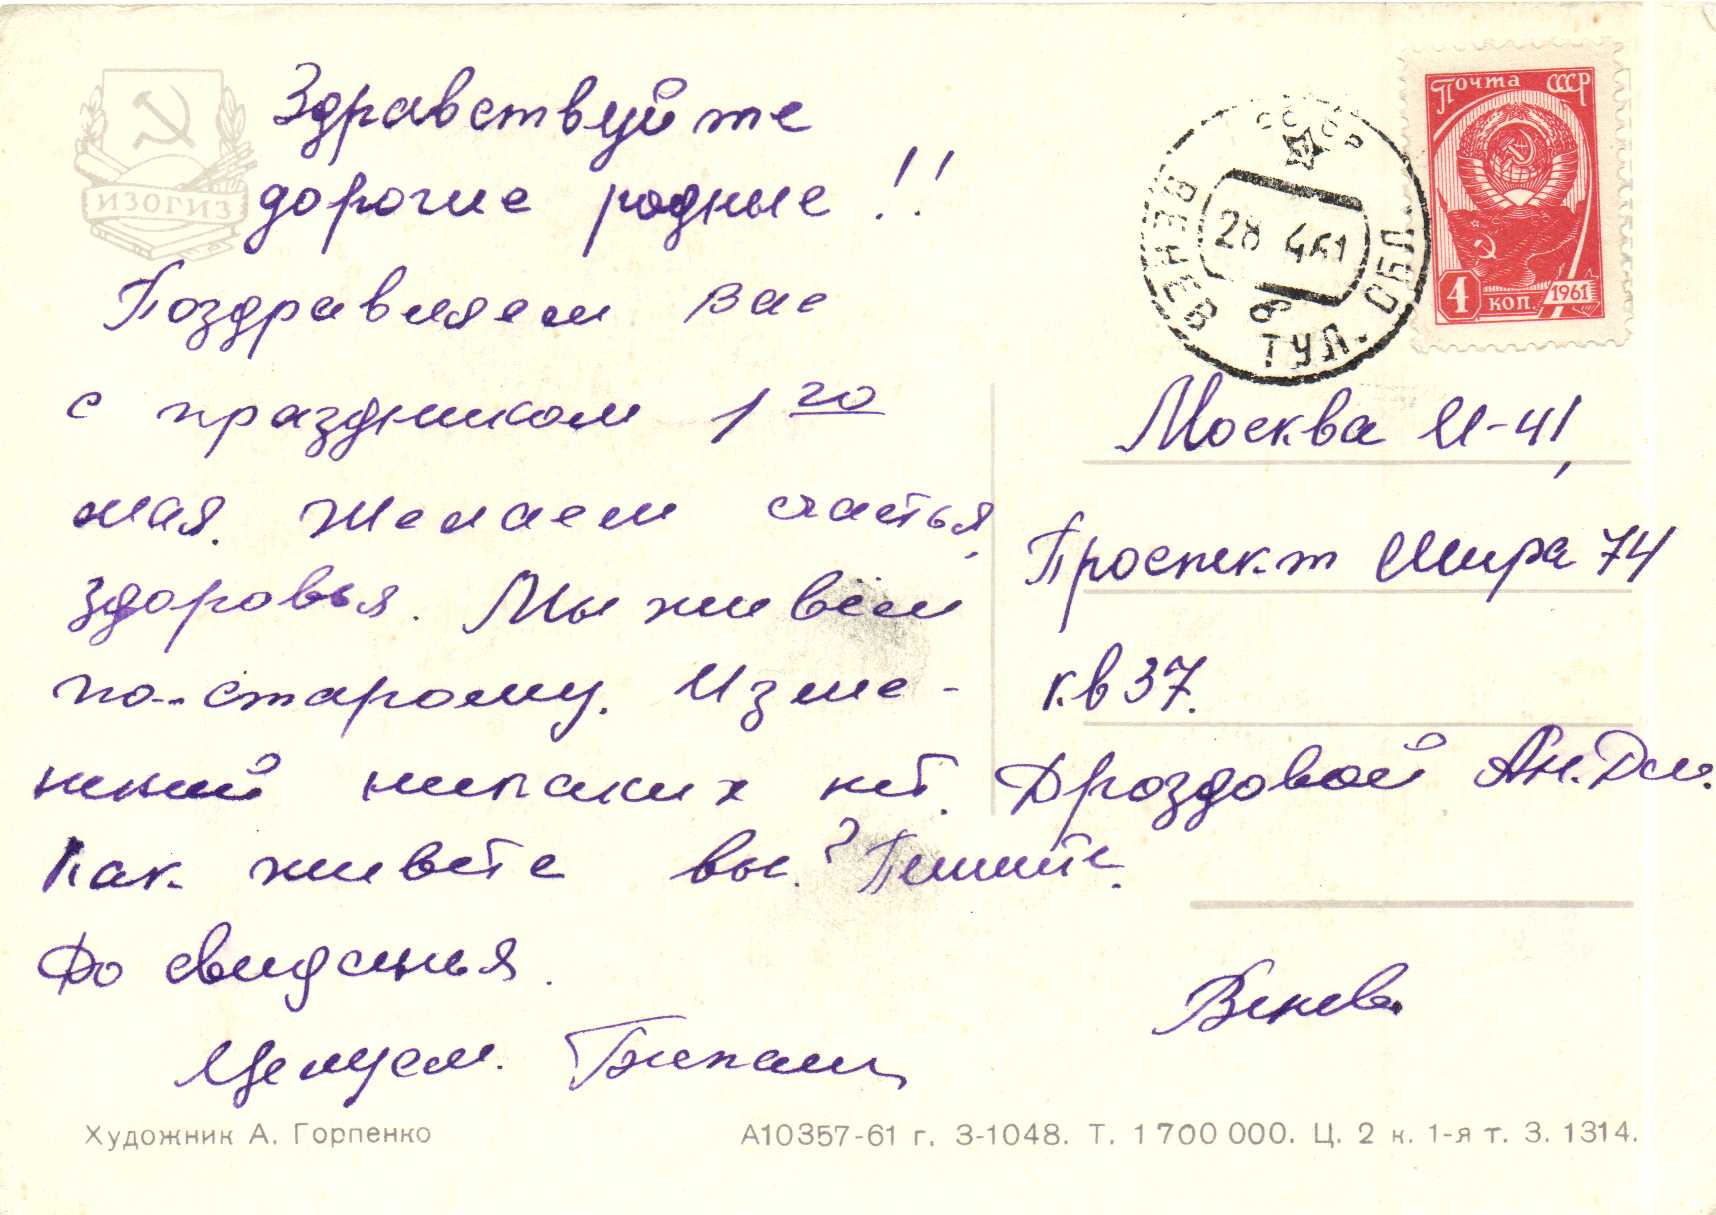 ИЗОГИЗ
Здравствуйте
дорогие родные!!
Поздравляем вас
с праздником 1го
мая. Желаем счастья,
здоровья. Мы живём
по-старому. Изме-
нений никаких нет.
Как живете вы? Пишите.
До свиданья.
Целуем.
Почта СССР
4 коп. 1961
СССР
ВЕНЕВ ТУЛ. ОБЛ.
28 4 61
Москва И-41,
Проспект Мира 74
кв 37.
Дроздовой Ан. Дм.
Венев
Художник А. Горпенко
А10357-61 г. З-1048. Т. 1 700 000. Ц. 2 к. 1-я т. З. 1314.